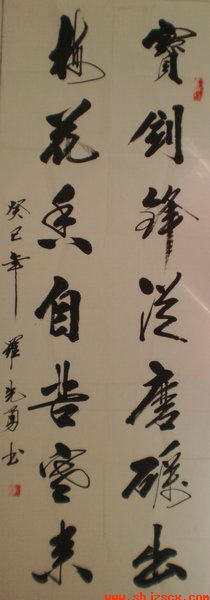 寳劍鋒從磨礪出
梅花香自苦寒来
癸巳年 羅光勇书
www.shjzscx.com